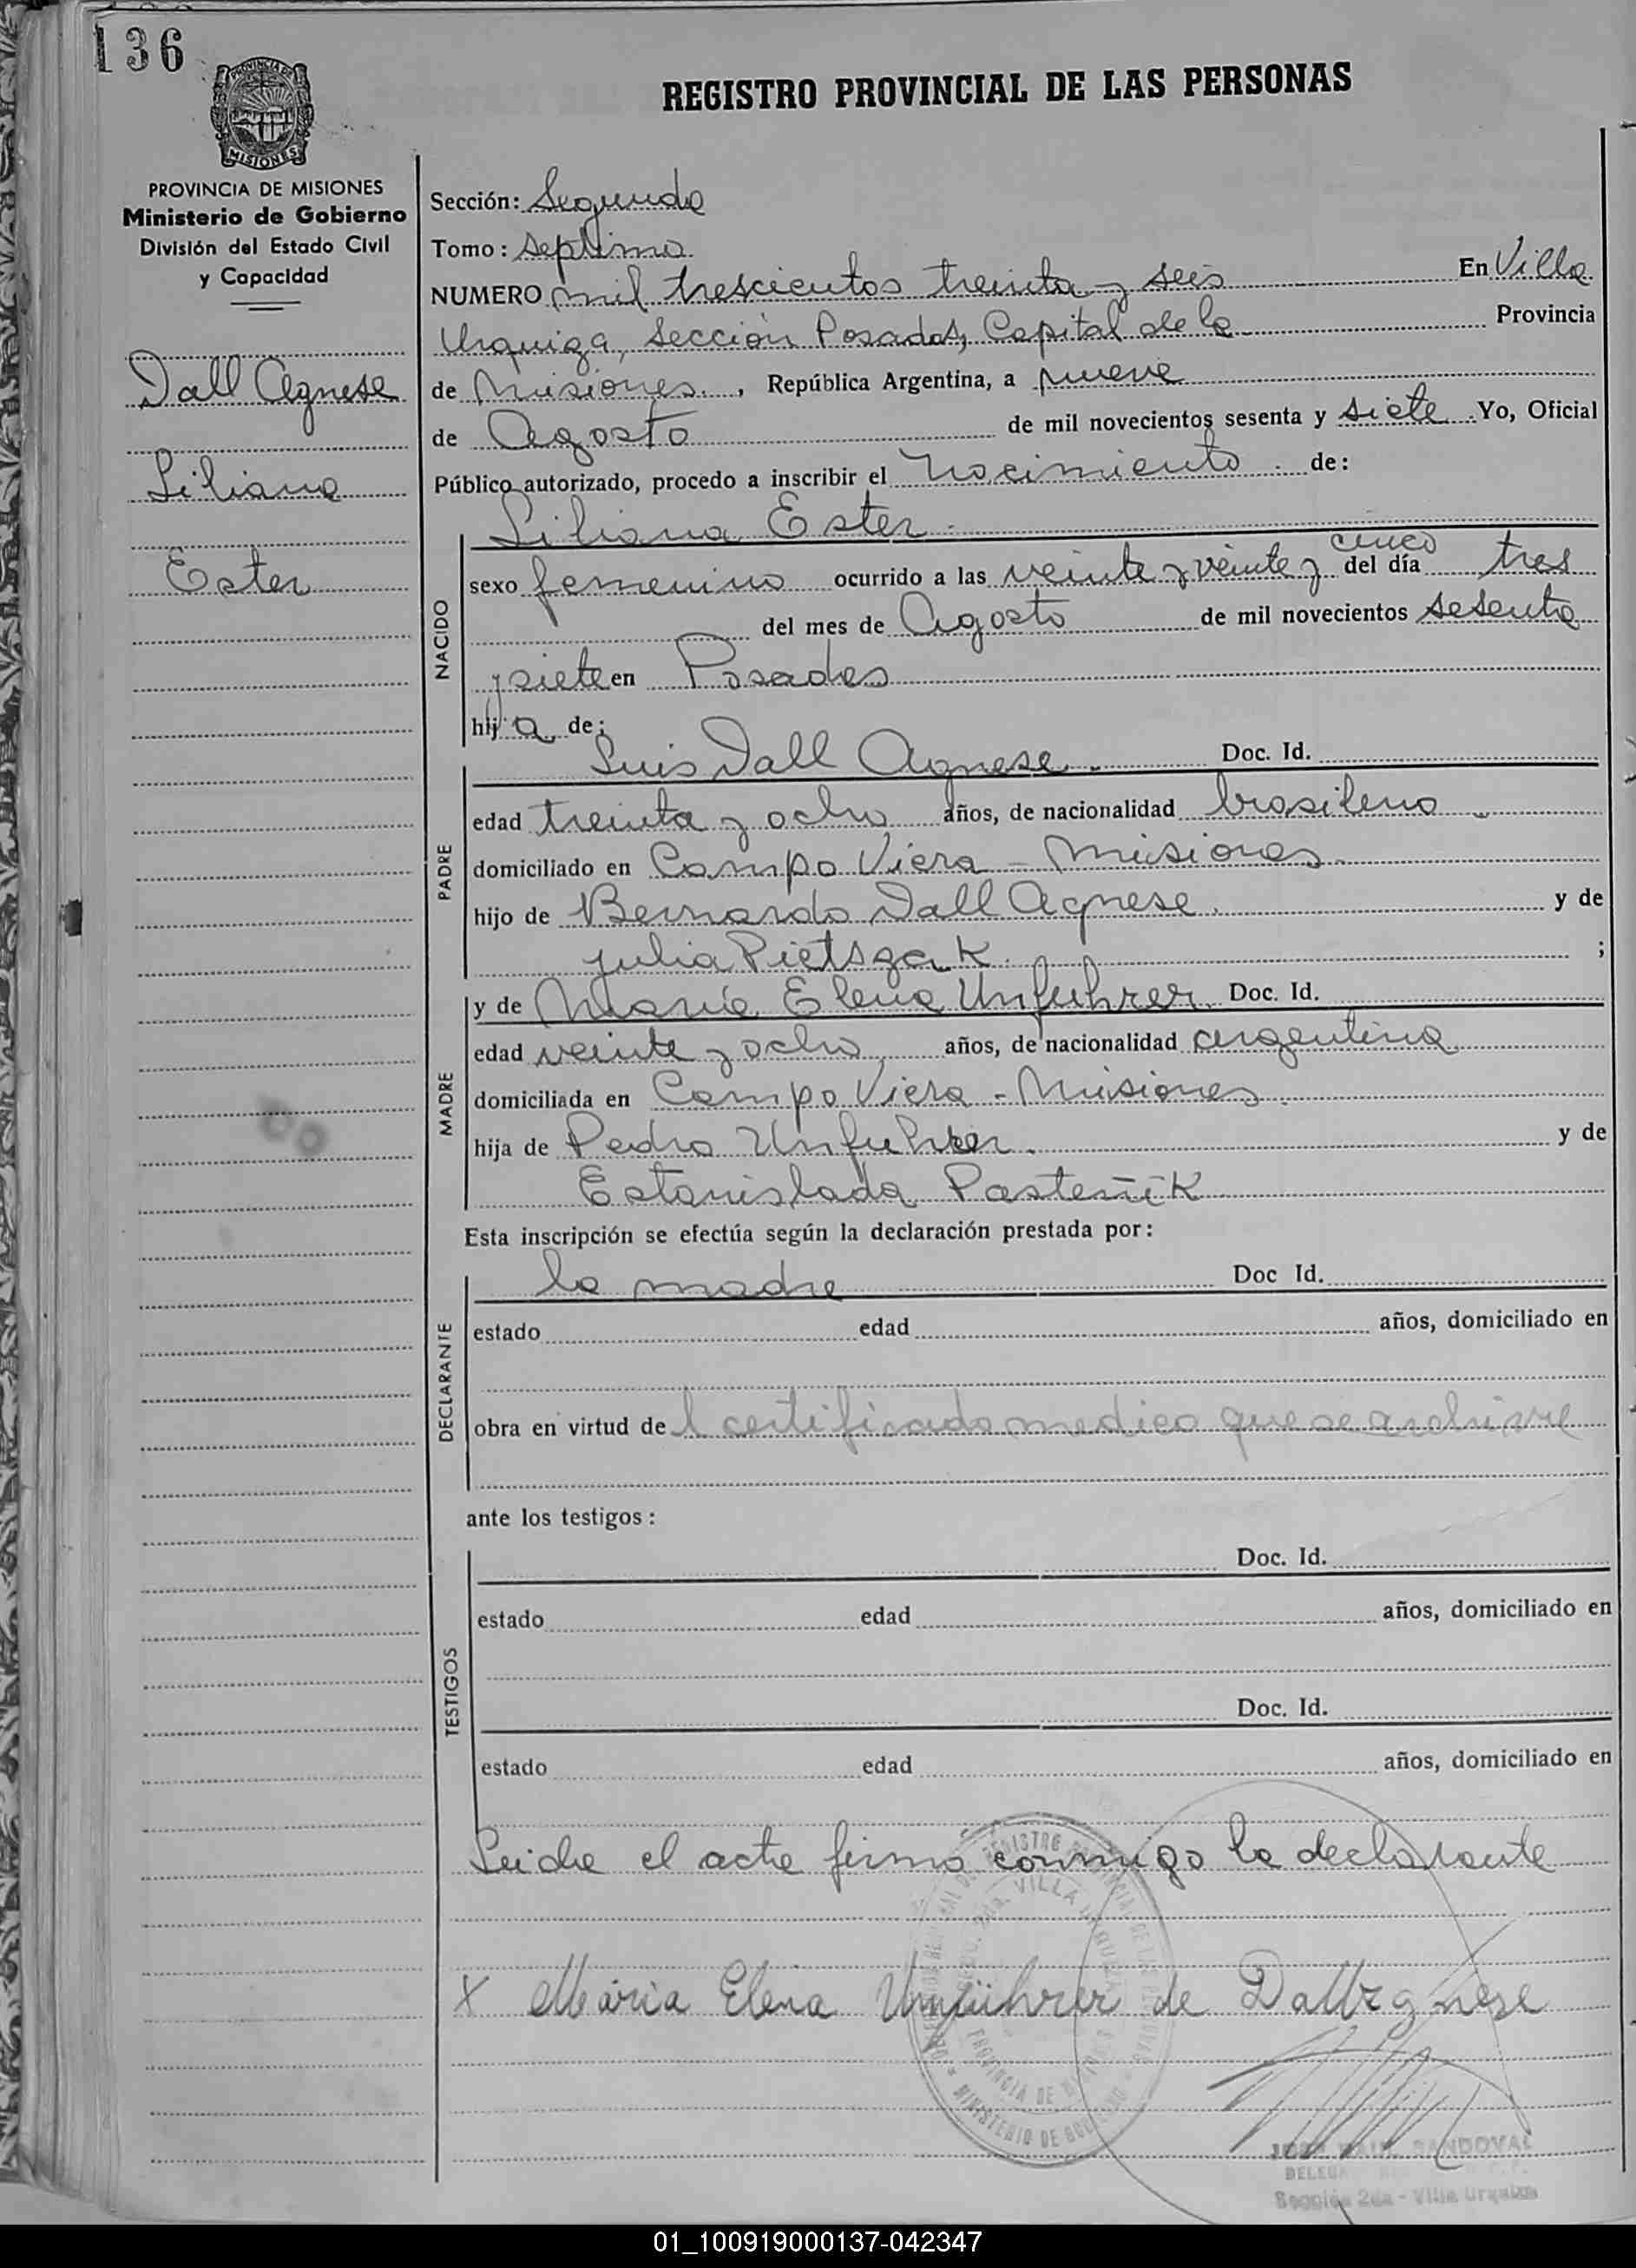 136
PROVINCIA DE
MISIONES
REGISTRO PROVINCIAL DE LAS PERSONAS
PROVINCIA DE MISIONES
Ministerio de Gobierno
División del Estado Civil
y Capacidad
Dall Agnese
Liliana
Ester
Sección: Segunda
Tomo: septimo
NUMERO mil trescientos treinta y seis En Villa
Urquiza, Sección Posadas, Capital de la Provincia
de Misiones, República Argentina, a nueve
de Agosto de mil novecientos sesenta y siete Yo, Oficial
Público autorizado, procedo a inscribir el nacimiento de:
Liliana Ester
NACIDO
cinco
sexo femenino ocurrido a las veinte y veinte y del día tres
del mes de Agosto de mil novecientos sesenta
y siete en Posadas
hija de:
PADRE
Luis Dall Agnese Doc. Id.
edad treinta y ocho años, de nacionalidad brasileno
domiciliado en Campo Viera - Misiones
hijo de Bernardo Dall Agnese y de
Julia Pietszak ;
MADRE
y de María Elena Unfuhrer Doc. Id.
edad veinte y ocho años, de nacionalidad argentina
domiciliada en Campo Viera - Misiones
hija de Pedro Unfuhrer y de
Estanislada Pasteñik
Esta inscripción se efectúa según la declaración prestada por:
DECLARANTE
la madre Doc Id.
estado edad años, domiciliado en
obra en virtud del certificado medico que se archive
ante los testigos:
TESTIGOS
Doc. Id.
estado edad años, domiciliado en
Doc. Id.
estado edad años, domiciliado en
Leida el acta firma conmigo la declarante
X Maria Elena Unführer de Dall Agnese
VILLA
PROVINCIA DE
MINISTERIO DE
SANDOVAL
Sección 2da - Villa Urquiza
01_100919000137-042347